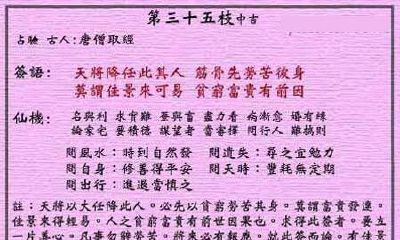 第三十五枝中吉
占驗 古人:唐僧取經
簽語: 天將降任此其人 筋骨先勞苦彼身
莫謂佳景來可易 貧窮富貴有前因
仙機: 名與利 求寶雖 蚕與畜 盡力看 病漸愈 婚有緣
論家宅 要積德 謀望者 當審擇 問行人 雖搞則
問風水:時到自然發 問遺失:尋之宜勉力
問自身:修善得平安 問天時:豐耗無定期
問出行:進退當慎之
註:天將以大任降此人。必先以貧窮勞苦其身。莫謂富貴發達。
佳景來得輕易。人之貧窮富貴有前世因果也。求得此簽者。要立
一片善心。凡事勿辭勞苦。將來必有報應。就此簽而論。有佳景